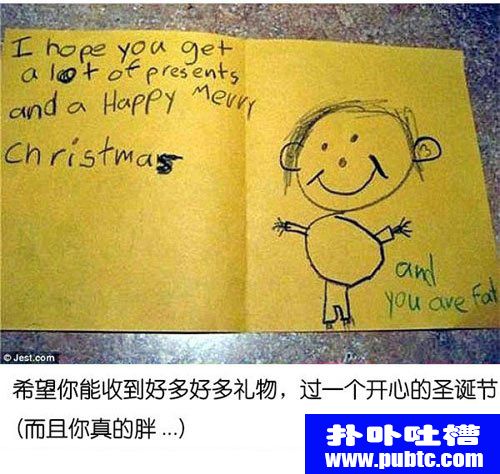 I hope you get
a lot of presents
and a Happy Merry
Christmas
and
you are fat
© Jest.com
希望你能收到好多好多礼物，过一个开心的圣诞节
(而且你真的胖 ...)
扑卟吐槽
www.pubtc.com